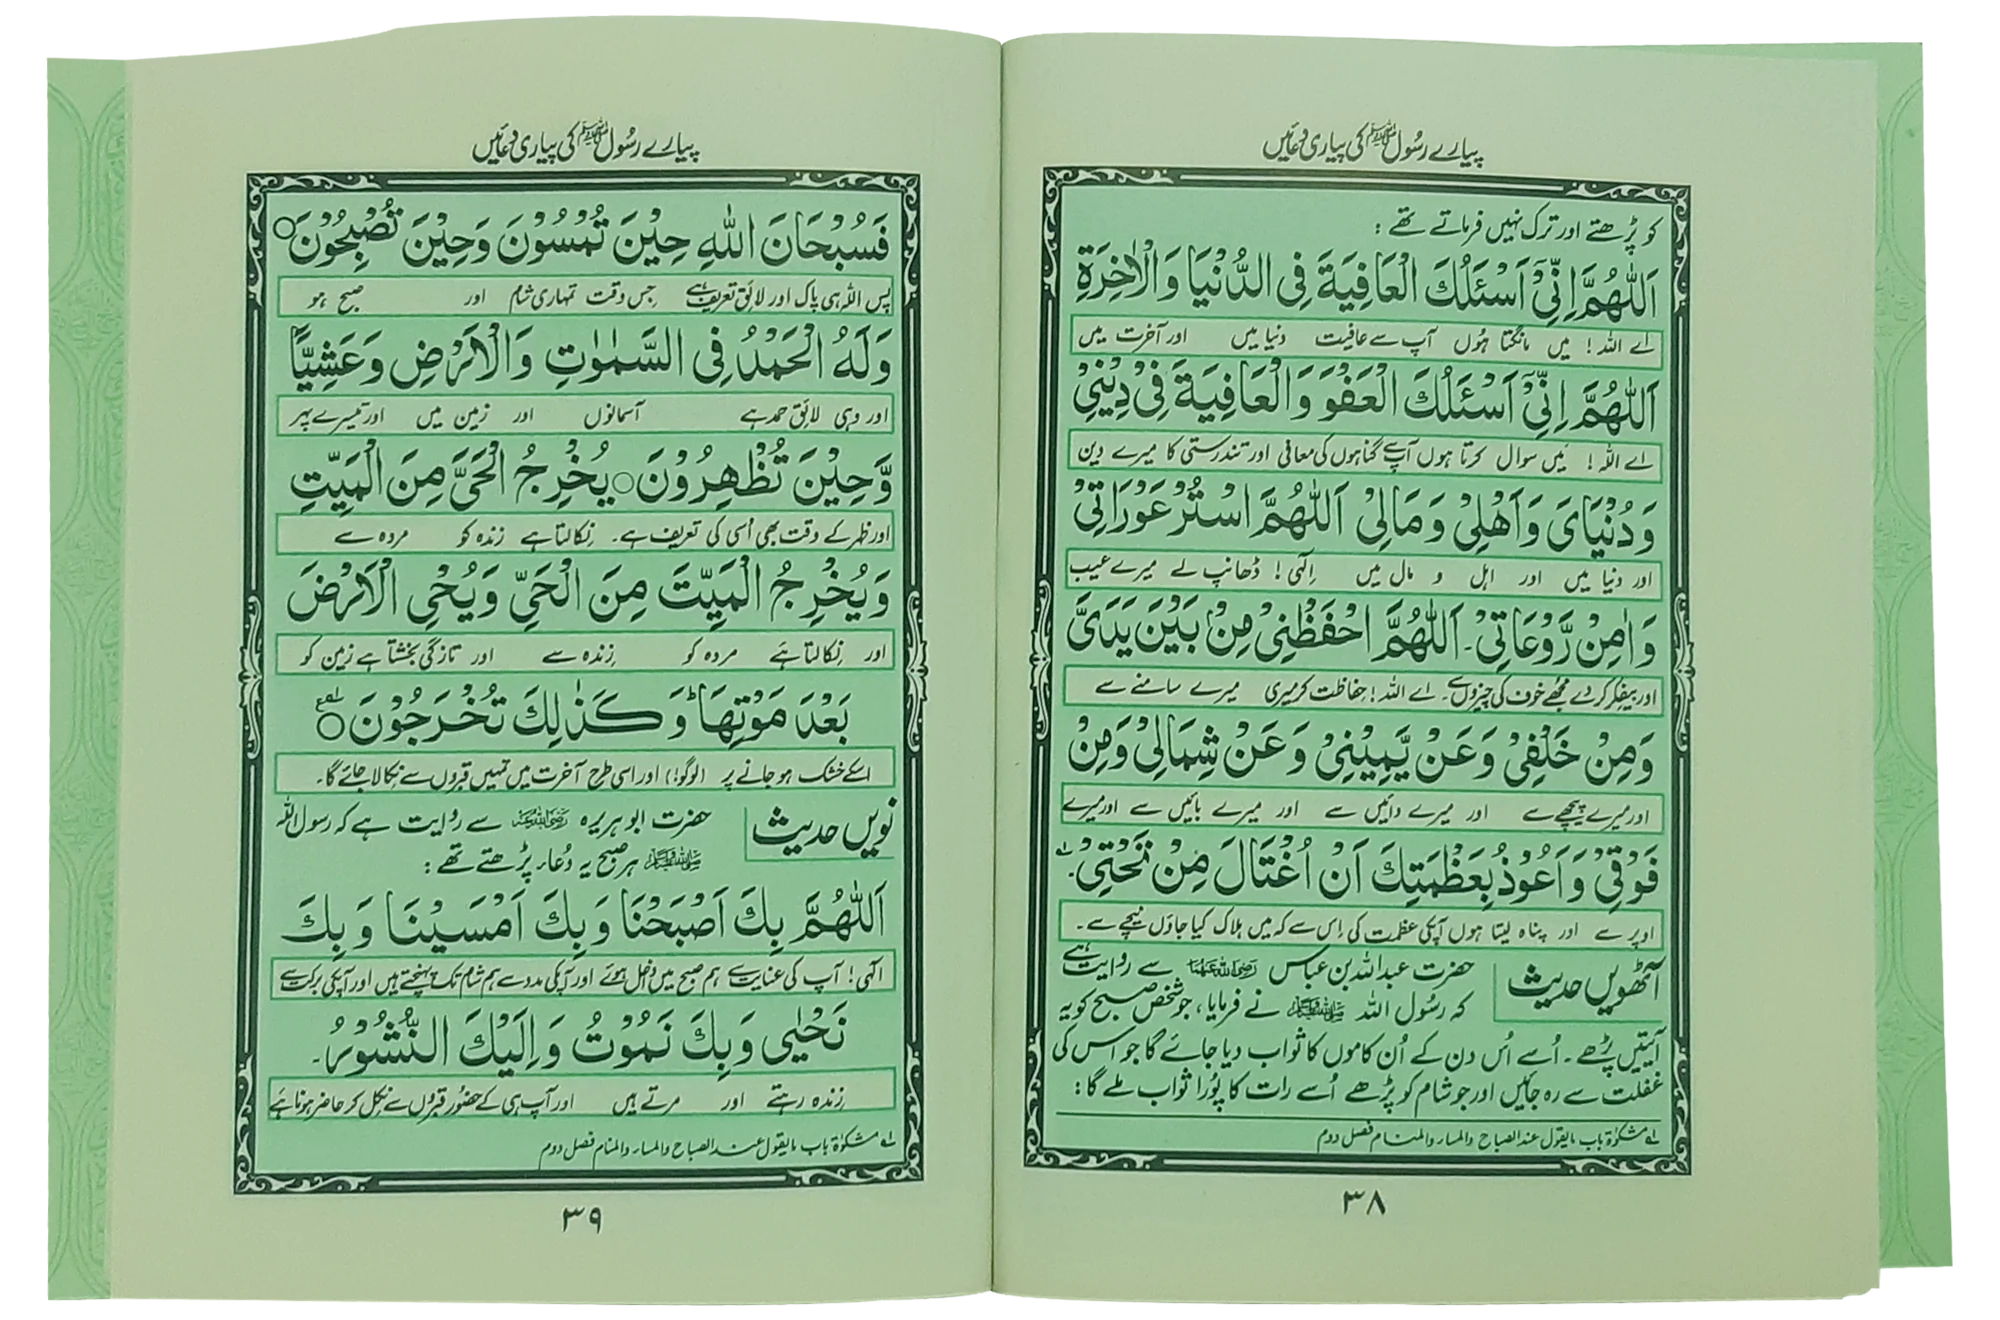 پیارے رسُول ﷺ کی پیاری دُعائیں
کو پڑھتے اور ترک نہیں فرماتے تھے :
اَللّٰهُمَّ اِنِّیْٓ اَسْئَلُكَ الْعَافِيَةَ فِی الدُّنْيَا وَالْاٰخِرَةِ
اے اللہ! میں مانگتا ہُوں آپ سے عافیت دنیا میں اور آخرت میں
اَللّٰهُمَّ اِنِّیْٓ اَسْئَلُكَ الْعَفْوَ وَالْعَافِيَةَ فِیْ دِيْنِیْ
اے اللہ! میں سوال کرتا ہوں آپ سے گناہوں کی معافی اور تندرستی کا میرے دین
وَدُنْيَایَ وَاَهْلِیْ وَمَالِیْ اَللّٰهُمَّ اسْتُرْ عَوْرَاتِیْ
اور دنیا میں اور اہل و مال میں اِلٰہی! ڈھانپ لے میرے عیب
وَاٰمِنْ رَّوْعَاتِیْ۔ اَللّٰهُمَّ احْفَظْنِیْ مِنْ بَيْنِ يَدَیَّ
اور بیفکر کر دے مجھے خوف کی چیزوں سے۔ اے اللہ! حفاظت کر میری میرے سامنے سے
وَمِنْ خَلْفِیْ وَعَنْ يَّمِيْنِیْ وَعَنْ شِمَالِیْ وَمِنْ
اور میرے پیچھے سے اور میرے دائیں سے اور میرے بائیں سے اور میرے
فَوْقِیْ وَاَعُوْذُ بِعَظْمَتِكَ اَنْ اُغْتَالَ مِنْ تَحْتِیْ۔ لہ
اوپر سے اور پناہ لیتا ہوں آپکی عظمت کی اِس سے کہ میں ہلاک کیا جاؤں نیچے سے۔
آٹھویں حدیث حضرت عبداللہ بن عباس رضی اللہ عنہما سے روایت ہے
کہ رسُول اللہ ﷺ نے فرمایا، جو شخص صبح کو یہ
آیتیں پڑھے۔ اُسے اُس دن کے اُن کاموں کا ثواب دیا جائے گا جو اس کی
غفلت سے رہ جائیں اور جو شام کو پڑھے اُسے رات کا پُورا ثواب ملے گا:
لہ مشکوٰۃ باب مایقول عندالصباح والمساء والمنام فصل دوم
۳۸
پیارے رسُول ﷺ کی پیاری دُعائیں
فَسُبْحَانَ اللّٰهِ حِيْنَ تُمْسُوْنَ وَحِيْنَ تُصْبِحُوْنَ○
پس اللہ ہی پاک اور لائق تعریف ہے جس وقت تمہاری شام اور صبح ہو
وَلَهُ الْحَمْدُ فِی السَّمٰوٰتِ وَالْاَرْضِ وَعَشِيًّا
اور وہی لائق حمد ہے آسمانوں اور زمین میں اور تیسرے پہر
وَّحِيْنَ تُظْهِرُوْنَ○ يُخْرِجُ الْحَیَّ مِنَ الْمَيِّتِ
اور ظہر کے وقت بھی اُسی کی تعریف ہے۔ نِکالتا ہے زندہ کو مردہ سے
وَيُخْرِجُ الْمَيِّتَ مِنَ الْحَیِّ وَيُحْیِ الْاَرْضَ
اور نِکالتا ہے مردہ کو زندہ سے اور تازگی بخشتا ہے زمین کو
بَعْدَ مَوْتِهَا ؕ وَكَذٰلِكَ تُخْرَجُوْنَ○
اسکے خشک ہو جانے پر (لوگو!) اور اسی طرح آخرت میں تمہیں قبروں سے نکالا جائے گا۔
نویں حدیث حضرت ابو ہریرہ رضی اللہ عنہ سے روایت ہے کہ رسول اللہ
ﷺ ہر صبح یہ دُعاء پڑھتے تھے :
اَللّٰهُمَّ بِكَ اَصْبَحْنَا وَبِكَ اَمْسَيْنَا وَبِكَ
الٰہی! آپ کی عنایت سے ہم صبح میں داخل ہُوئے اور آپکی مدد سے ہم شام تک پہنچتے ہیں اور آپکی برکت سے
نَحْيٰی وَبِكَ نَمُوْتُ وَاِلَيْكَ النُّشُوْرُ۔
زندہ رہتے اور مرتے ہیں اور آپ ہی کے حضُور قبروں سے نکِل کر حاضر ہونا ہے
لہ مشکوٰۃ باب مایقول عندالصباح والمساء والمنام فصل دوم
۳۹